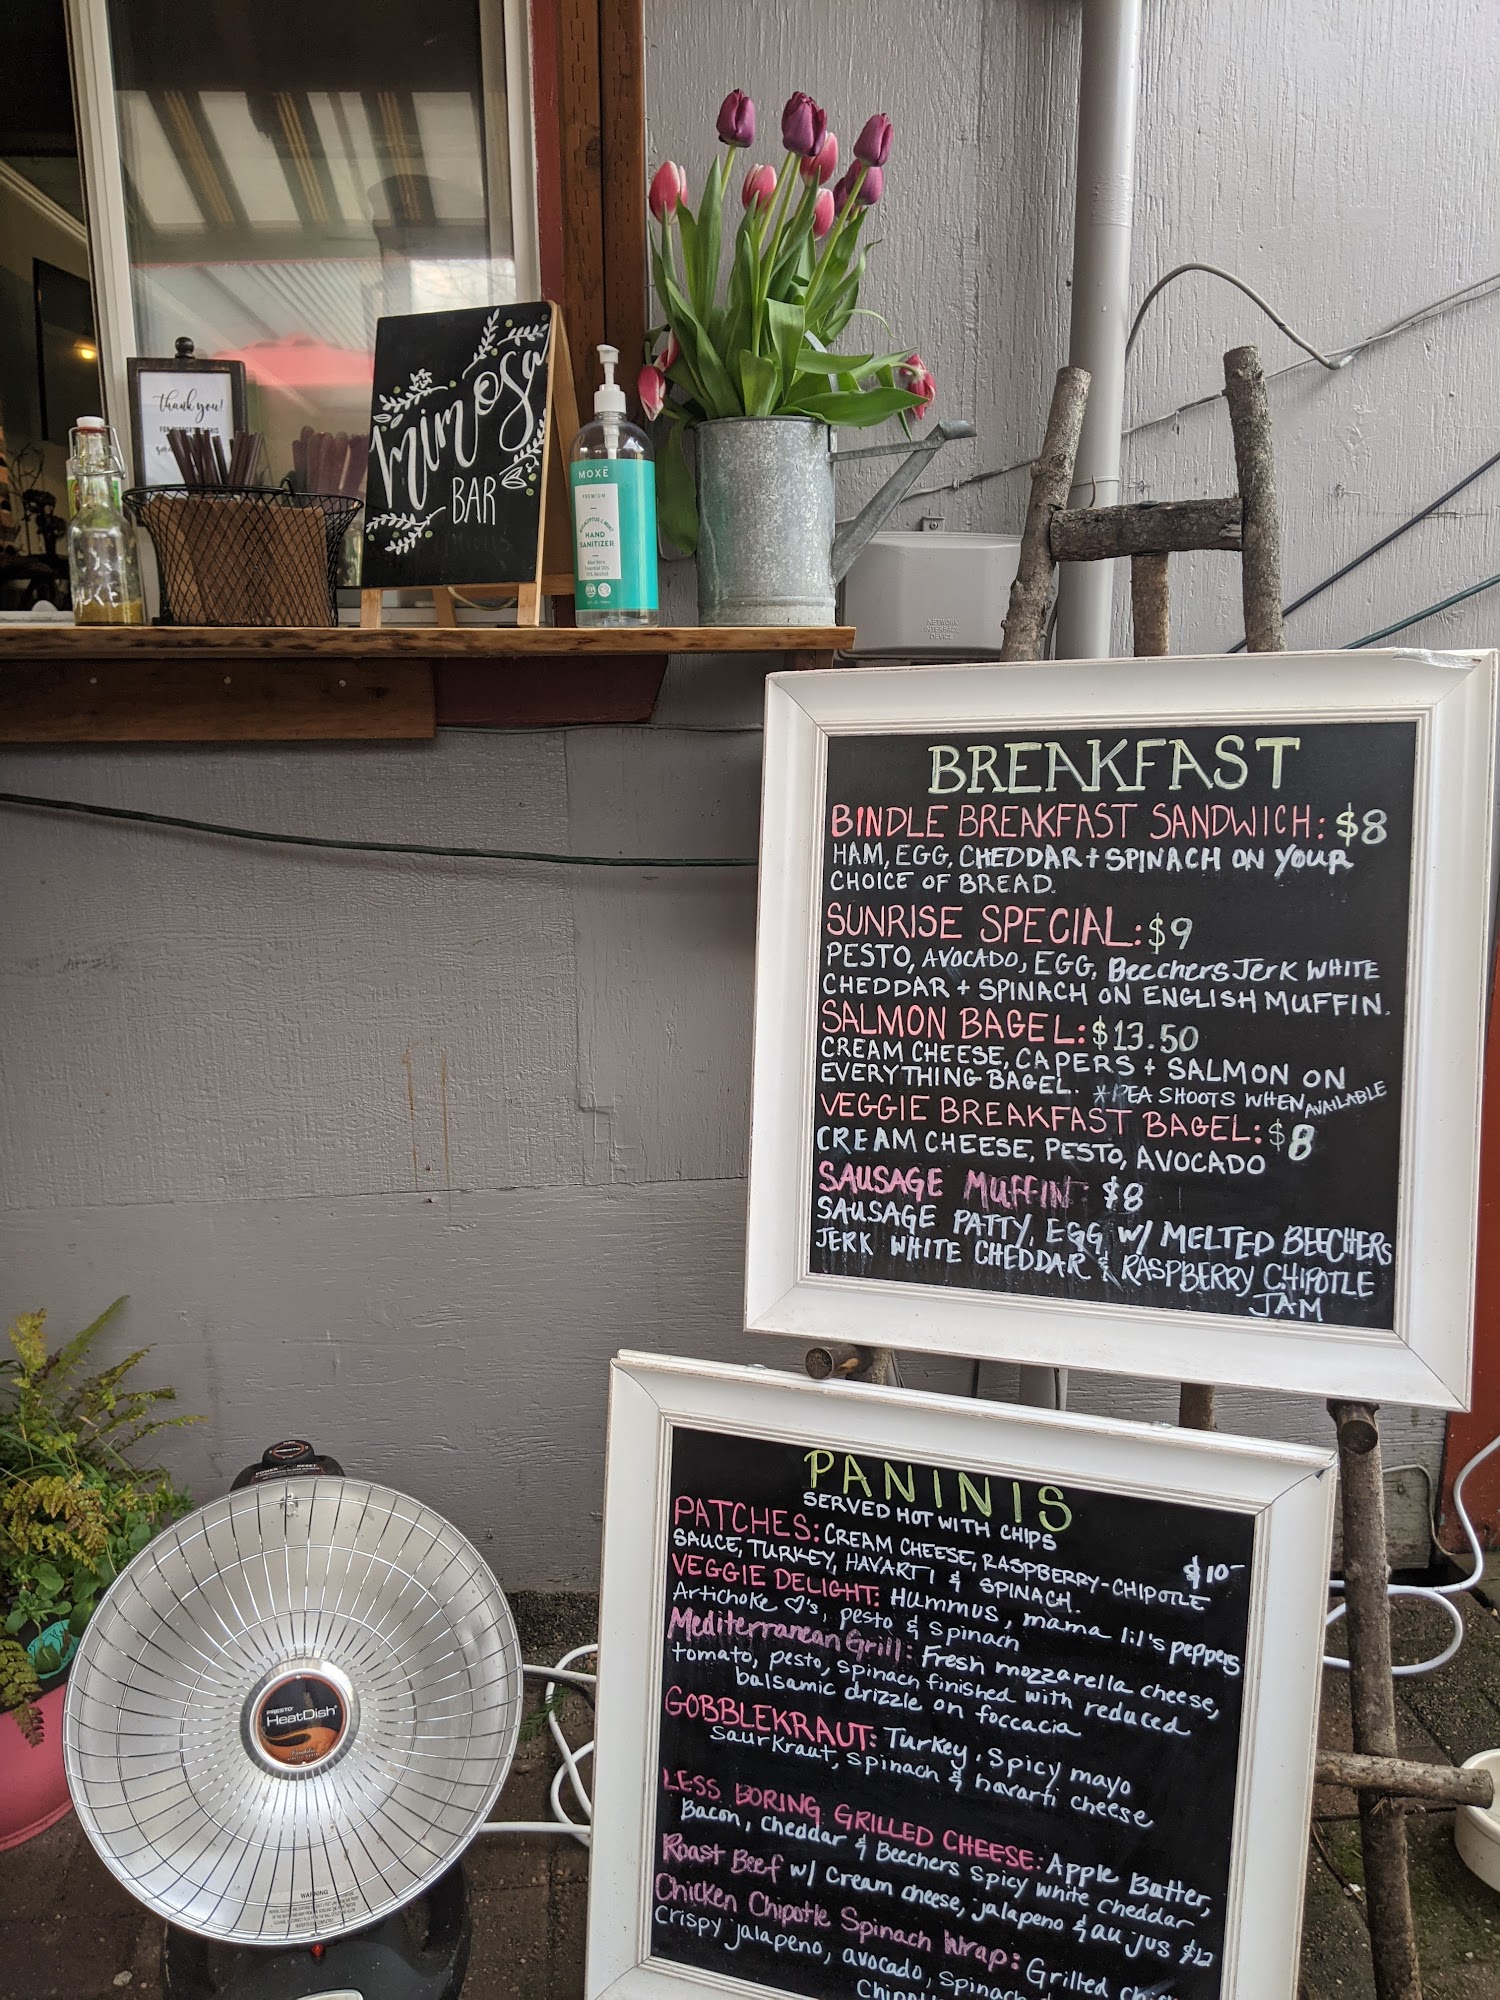 thank you!
mimosa
BAR
MOXĒ
PREMIUM
EUCALYPTUS & MINT
HAND
SANITIZER
Aloe Vera
Essential Oils
NETWORK
INTERFACE
DEVICE
BREAKFAST
BINDLE BREAKFAST SANDWICH: $8
HAM, EGG, CHEDDAR + SPINACH ON YOUR
CHOICE OF BREAD.
SUNRISE SPECIAL: $9
PESTO, AVOCADO, EGG, Beechers Jerk WHITE
CHEDDAR + SPINACH ON ENGLISH MUFFIN.
SALMON BAGEL: $13.50
CREAM CHEESE, CAPERS + SALMON ON
EVERYTHING BAGEL. *PEA SHOOTS WHEN AVAILABLE
VEGGIE BREAKFAST BAGEL: $8
CREAM CHEESE, PESTO, AVOCADO
SAUSAGE MUFFIN: $8
SAUSAGE PATTY, EGG, W/ MELTED BEECHERS
JERK WHITE CHEDDAR & RASPBERRY CHIPOTLE
JAM
PANINIS
SERVED HOT WITH CHIPS
$10-
PATCHES: CREAM CHEESE, RASPBERRY-CHIPOTLE
SAUCE, TURKEY, HAVARTI & SPINACH.
VEGGIE DELIGHT: Hummus, mama lil's peppers
Artichoke ♡'s, pesto & spinach
Mediterranean Grill: Fresh mozzarella cheese,
tomato, pesto, spinach finished with reduced
balsamic drizzle on foccacia
GOBBLEKRAUT: Turkey, Spicy mayo
Saurkraut, spinach & havarti cheese
LESS BORING GRILLED CHEESE: Apple Butter,
Bacon, cheddar & Beechers spicy white cheddar
Roast Beef w/ cream cheese, jalapeno & au jus $12
Chicken Chipotle Spinach Wrap: Grilled
crispy jalapeno, avocado, spinach
POWER
RESET
PRESTO
HeatDish
WARNING